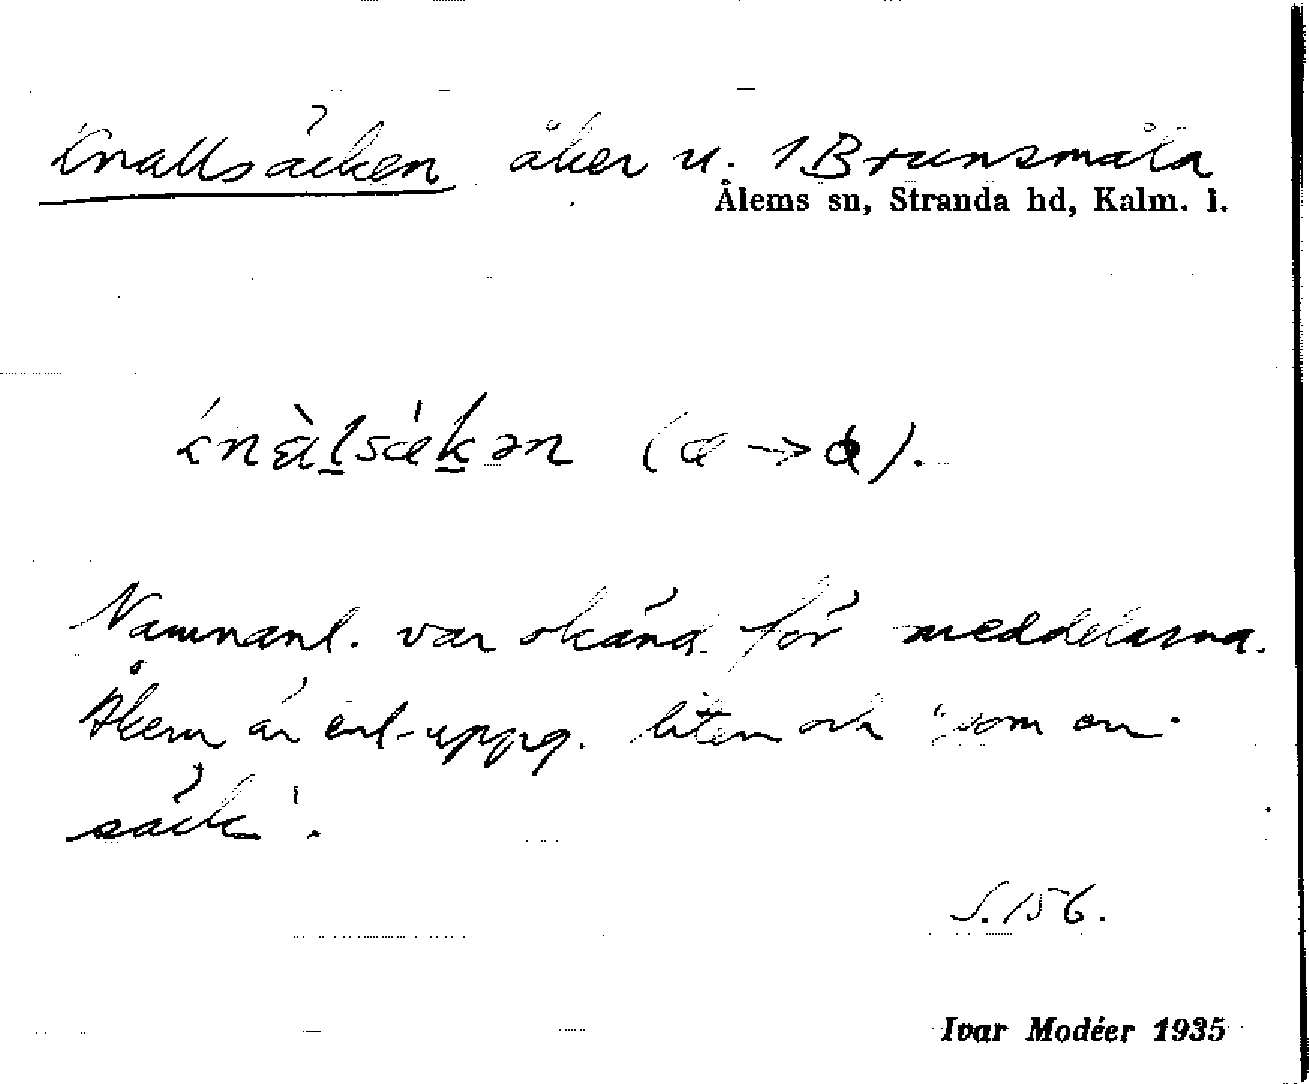 Knallsäcken åker u. 1 Brunsmåla
Ålems sn, Stranda hd, Kalm. l.
knàlsækən (æ → ).
Namnanl. var okänd för meddelarna.
Åkern är enl. uppg. liten och "som en
säck".
S. 156.
Ivar Modéer 1935